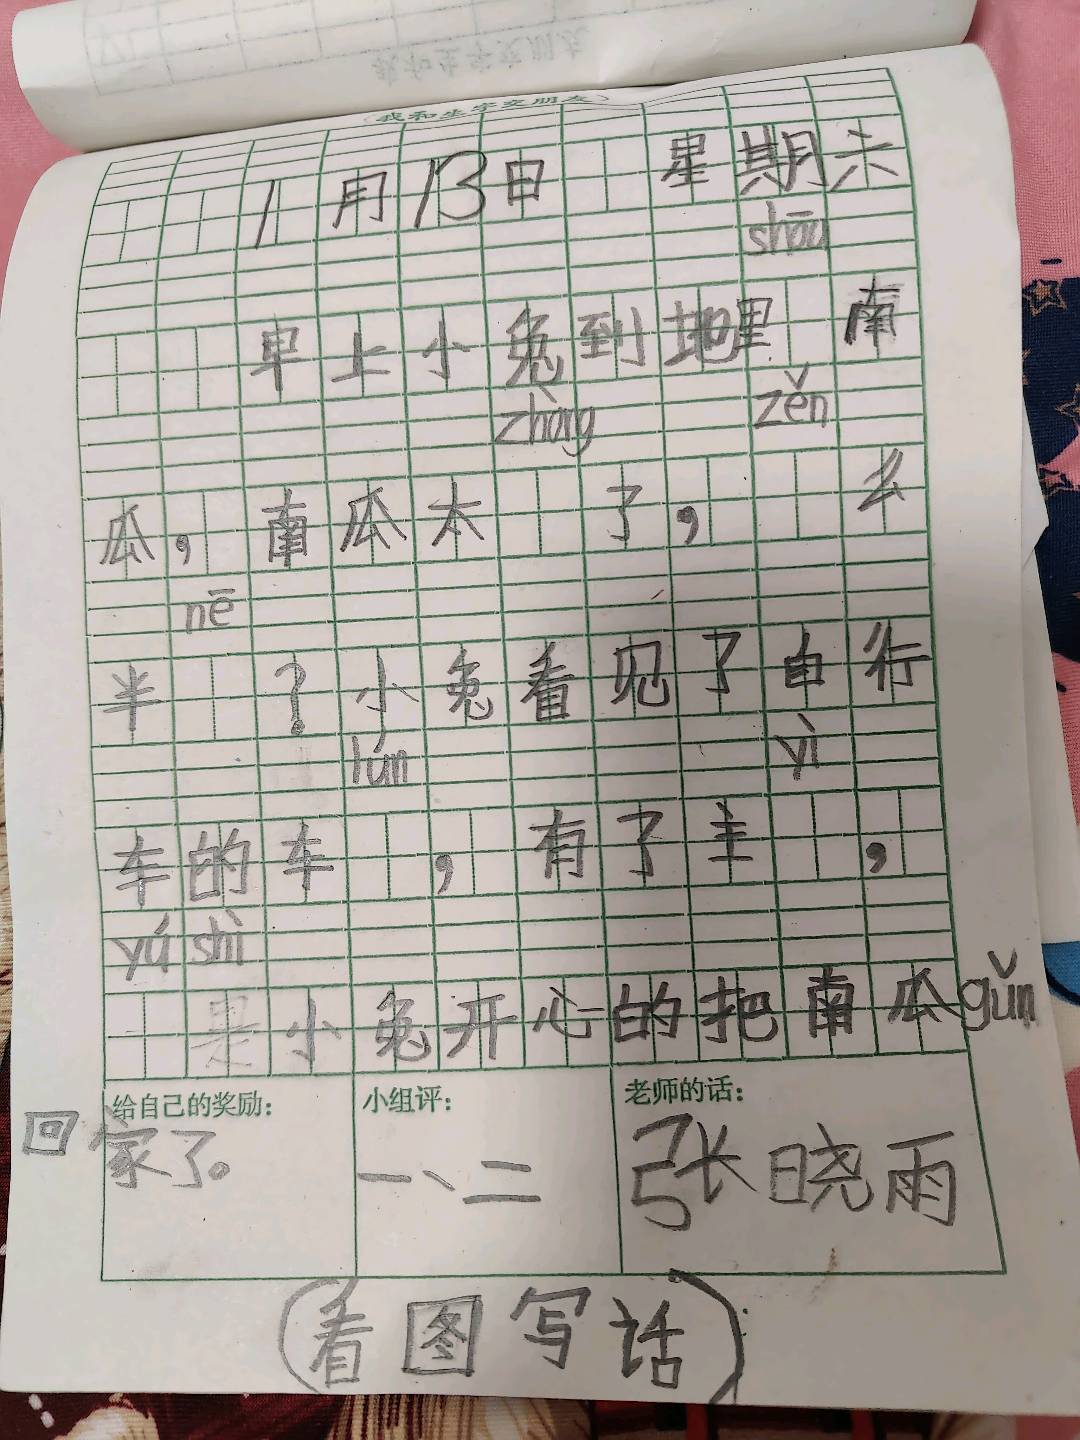 (我和生字交朋友)
1月13日 星期六
shōu
早上小兔到地里 南
zhòng zěn
瓜，南瓜太 了， 么
nē
半 ？小兔看见了自行
lún yì
车的车 ，有了主 ，
yú shì
是小兔开心的把南瓜gǔn
给自己的奖励： 小组评： 老师的话：
回家了。 一、二 张晓雨
(看图写话)